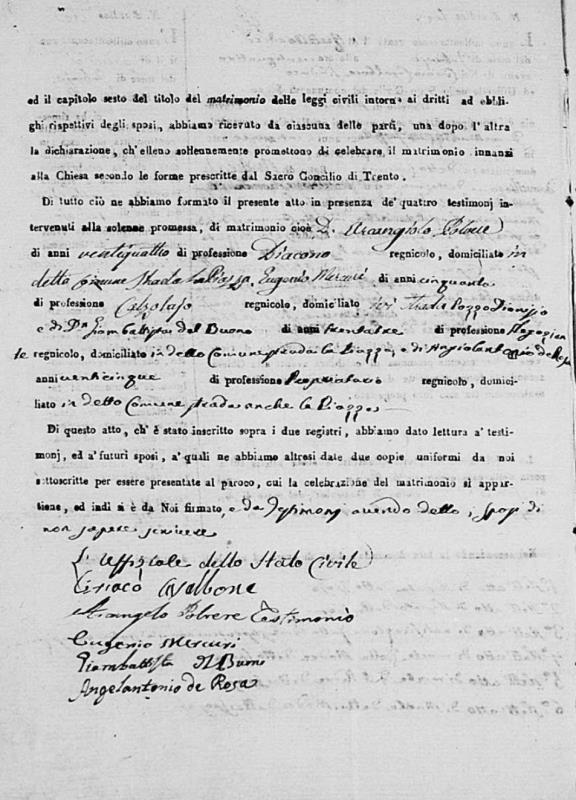 ed il capitolo sesto del titolo del matrimonio delle leggi civili intorno ai dritti ed obbli-
ghi rispettivi degli sposi, abbiamo ricevuto da ciascuna delle parti, una dopo l'altra
la dichiarazione, ch'elleno sollennemente promettono di celebrare il matrimonio innanzi
alla Chiesa secondo le forme prescritte dal Sacro Concilio di Trento.
Di tutto ciò ne abbiamo formato il presente atto in presenza de' quattro testimonj in-
tervenuti alla solenne promessa, di matrimonio cioè D. Arcangiolo Polvere
di anni ventiquattro di professione Diacono regnicolo, domiciliato in
detto Comune Strada la Piazza, Eugenio Mercuri di anni cinquanta
di professione Calzolajo regnicolo, domiciliato ivi Strada Pozzo Dionisio
e di Dn Giambattista del Buono di anni trentatre di professione
regnicolo, domiciliato in detto Comune strada la Piazza, e di Angiolantonio de Rosa
anni venticinque di professione Proprietario regnicolo, domici-
liato in detto Comune strada anche la Piazza
Di questo atto, ch'è stato inscritto sopra i due registri, abbiamo dato lettura a' testi-
monj, ed a' futuri sposi, a' quali ne abbiamo altresì date due copie uniformi da noi
sottoscritte per essere presentate al paroco, cui la celebrazione del matrimonio si appar-
tiene, ed indi si è da Noi firmato, e da testimonj avendo detto i sposi di
non sapere scrivere
L'Uffiziale dello Stato Civile
Ciriaco
Arcangelo Polvere Testimonio
Eugenio Mercuri
Giambattista del Buono
Angelantonio de Rosa